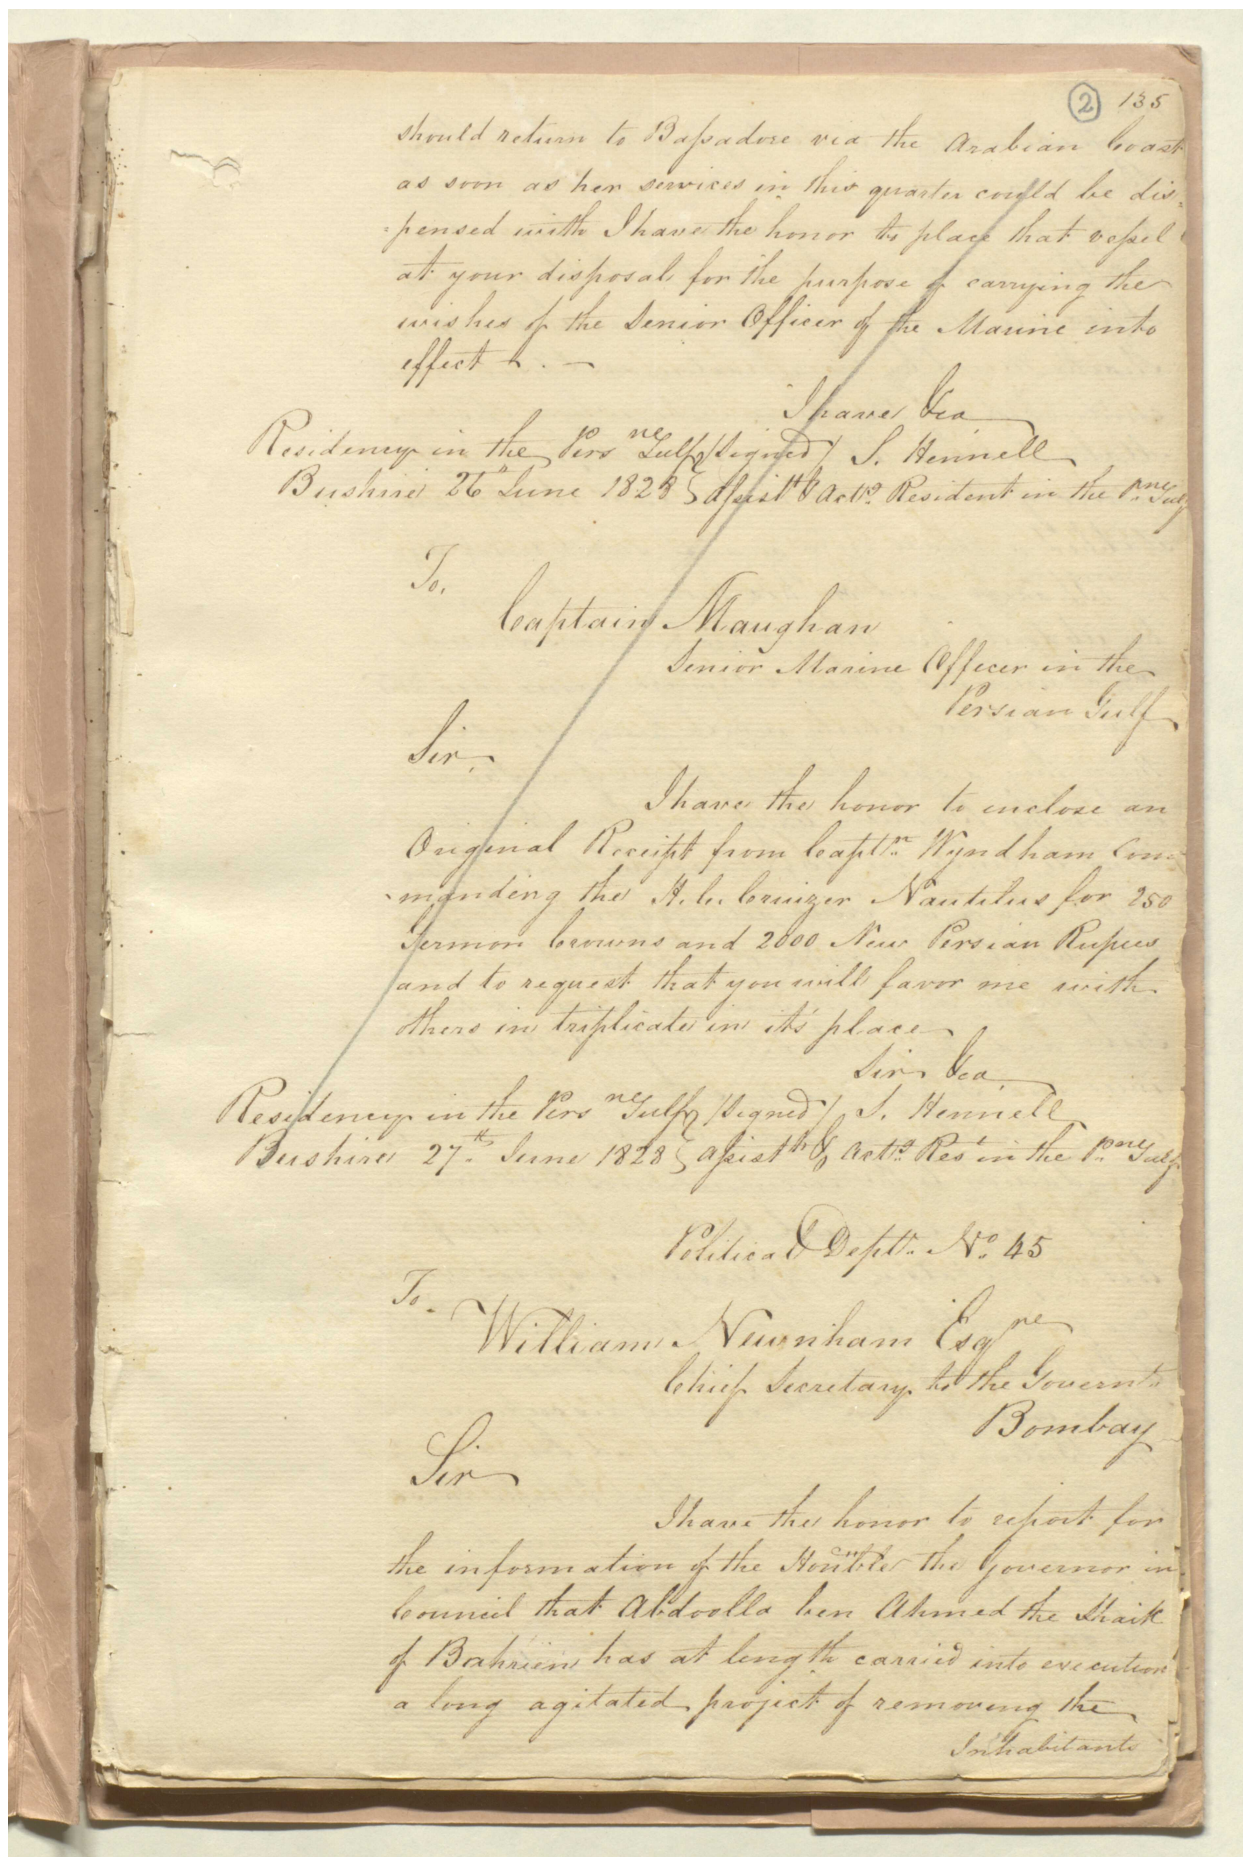 2 135
should return to Bassadore via the Arabian Coast
as soon as her services in this quarter could be dis=
=pensed with I have the honor to place that vessel
at your disposal for the purpose of carrying the
wishes of the Senior Officer of the Marine into
effect
I have &ca
Residency in the Persne Gulf } (Signed) S. Hennell
Bushire 26th June 1828 } Assistt & Actg Resident in the Pne Gulf
To,
Captain Maughan
Senior Marine Officer in the
Persian Gulf
Sir,
I have the honor to inclose an
Original Receipt from Captn Wyndham Com=
=manding the H. C. Cruizer Nautilus for 250
Germon Crowns and 2000 New Persian Rupees
and to request that you will favor me with
others in triplicate in it's place
Sir &ca
Residency in the Persne Gulf } (Signed) S. Hennell
Bushire 27th June 1828 } Assistt & Actg Rest in the Pne Gulf
Political Deptt No 45
To.
William Newnham Esqre
Chief Secretary to the Governt
Bombay
Sir
I have the honor to report for
the information of the Honble the Governor in
Council that Abdoolla ben Ahmed the Shaik
of Bahrein has at length carried into execution
a long agitated project of removing the
Inhabitants